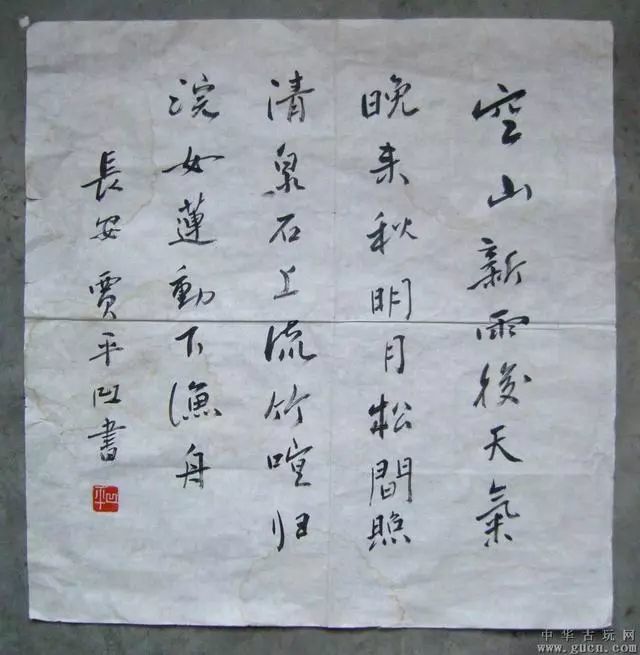 空山新雨後天氣
晚来秋明月松間照
清泉石上流竹喧归
浣女蓮動下漁舟
長安賈平凹書
平凹
中华古玩网
www.gucn.com